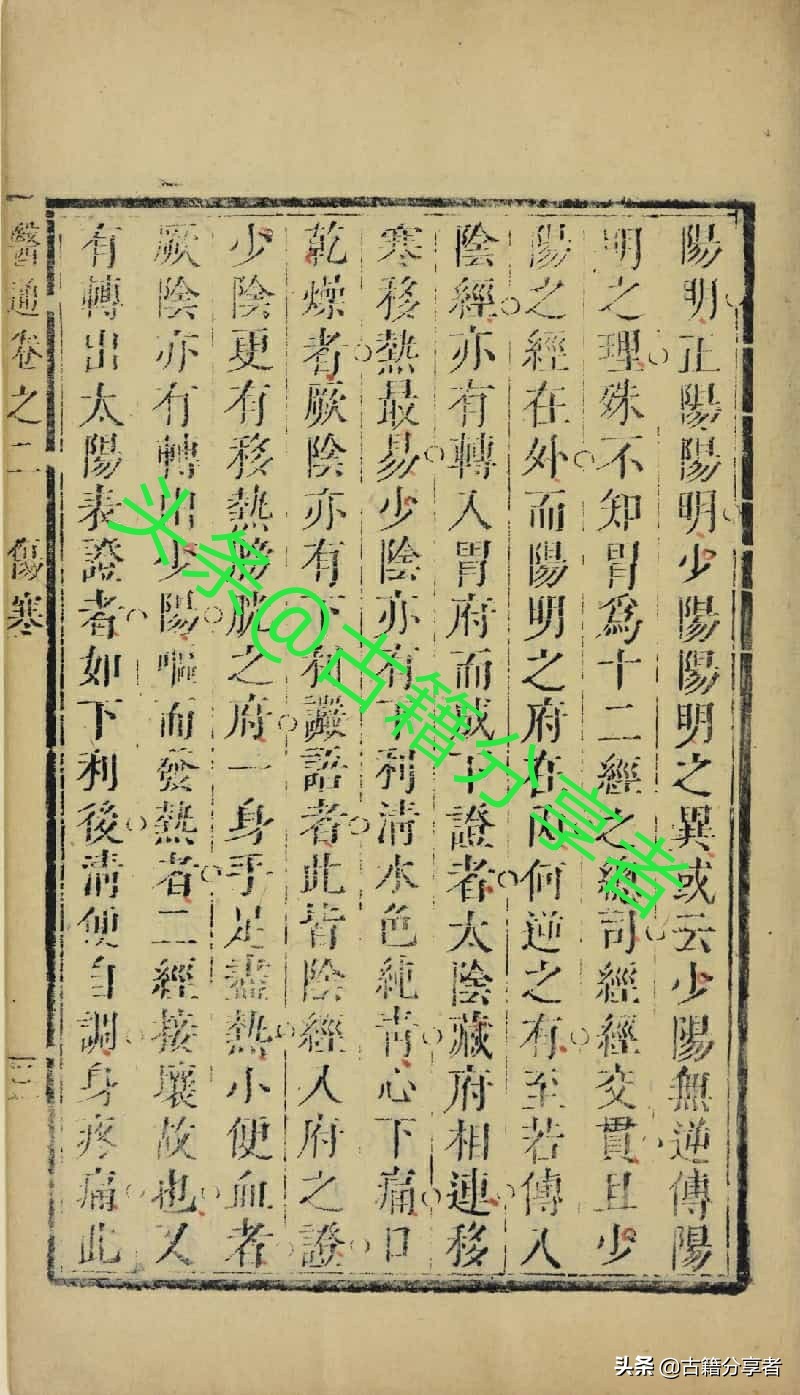 陽明正陽陽明少陽陽明之異或云少陽無逆傳陽
明之理殊不知胃爲十二經之總司經經交貫且少
陽之經在外而陽明之府在內何逆之有至若傳入
陰經亦有轉入胃府而成下證者太陰藏府相連移
寒移熱最易少陰亦有下利清水色純青心下痛口
乾燥者厥陰亦有下利讝語者此皆陰經入府之證
少陰更有移熱膀胱之府一身手足盡熱小便血者
厥陰亦有轉出少陽嘔而發熱者二經接壤故也又
有轉出太陽表證者如下利後清便自調身疼痛此
醫通卷之二 傷寒
头条@古籍分享者
头条 @古籍分享者